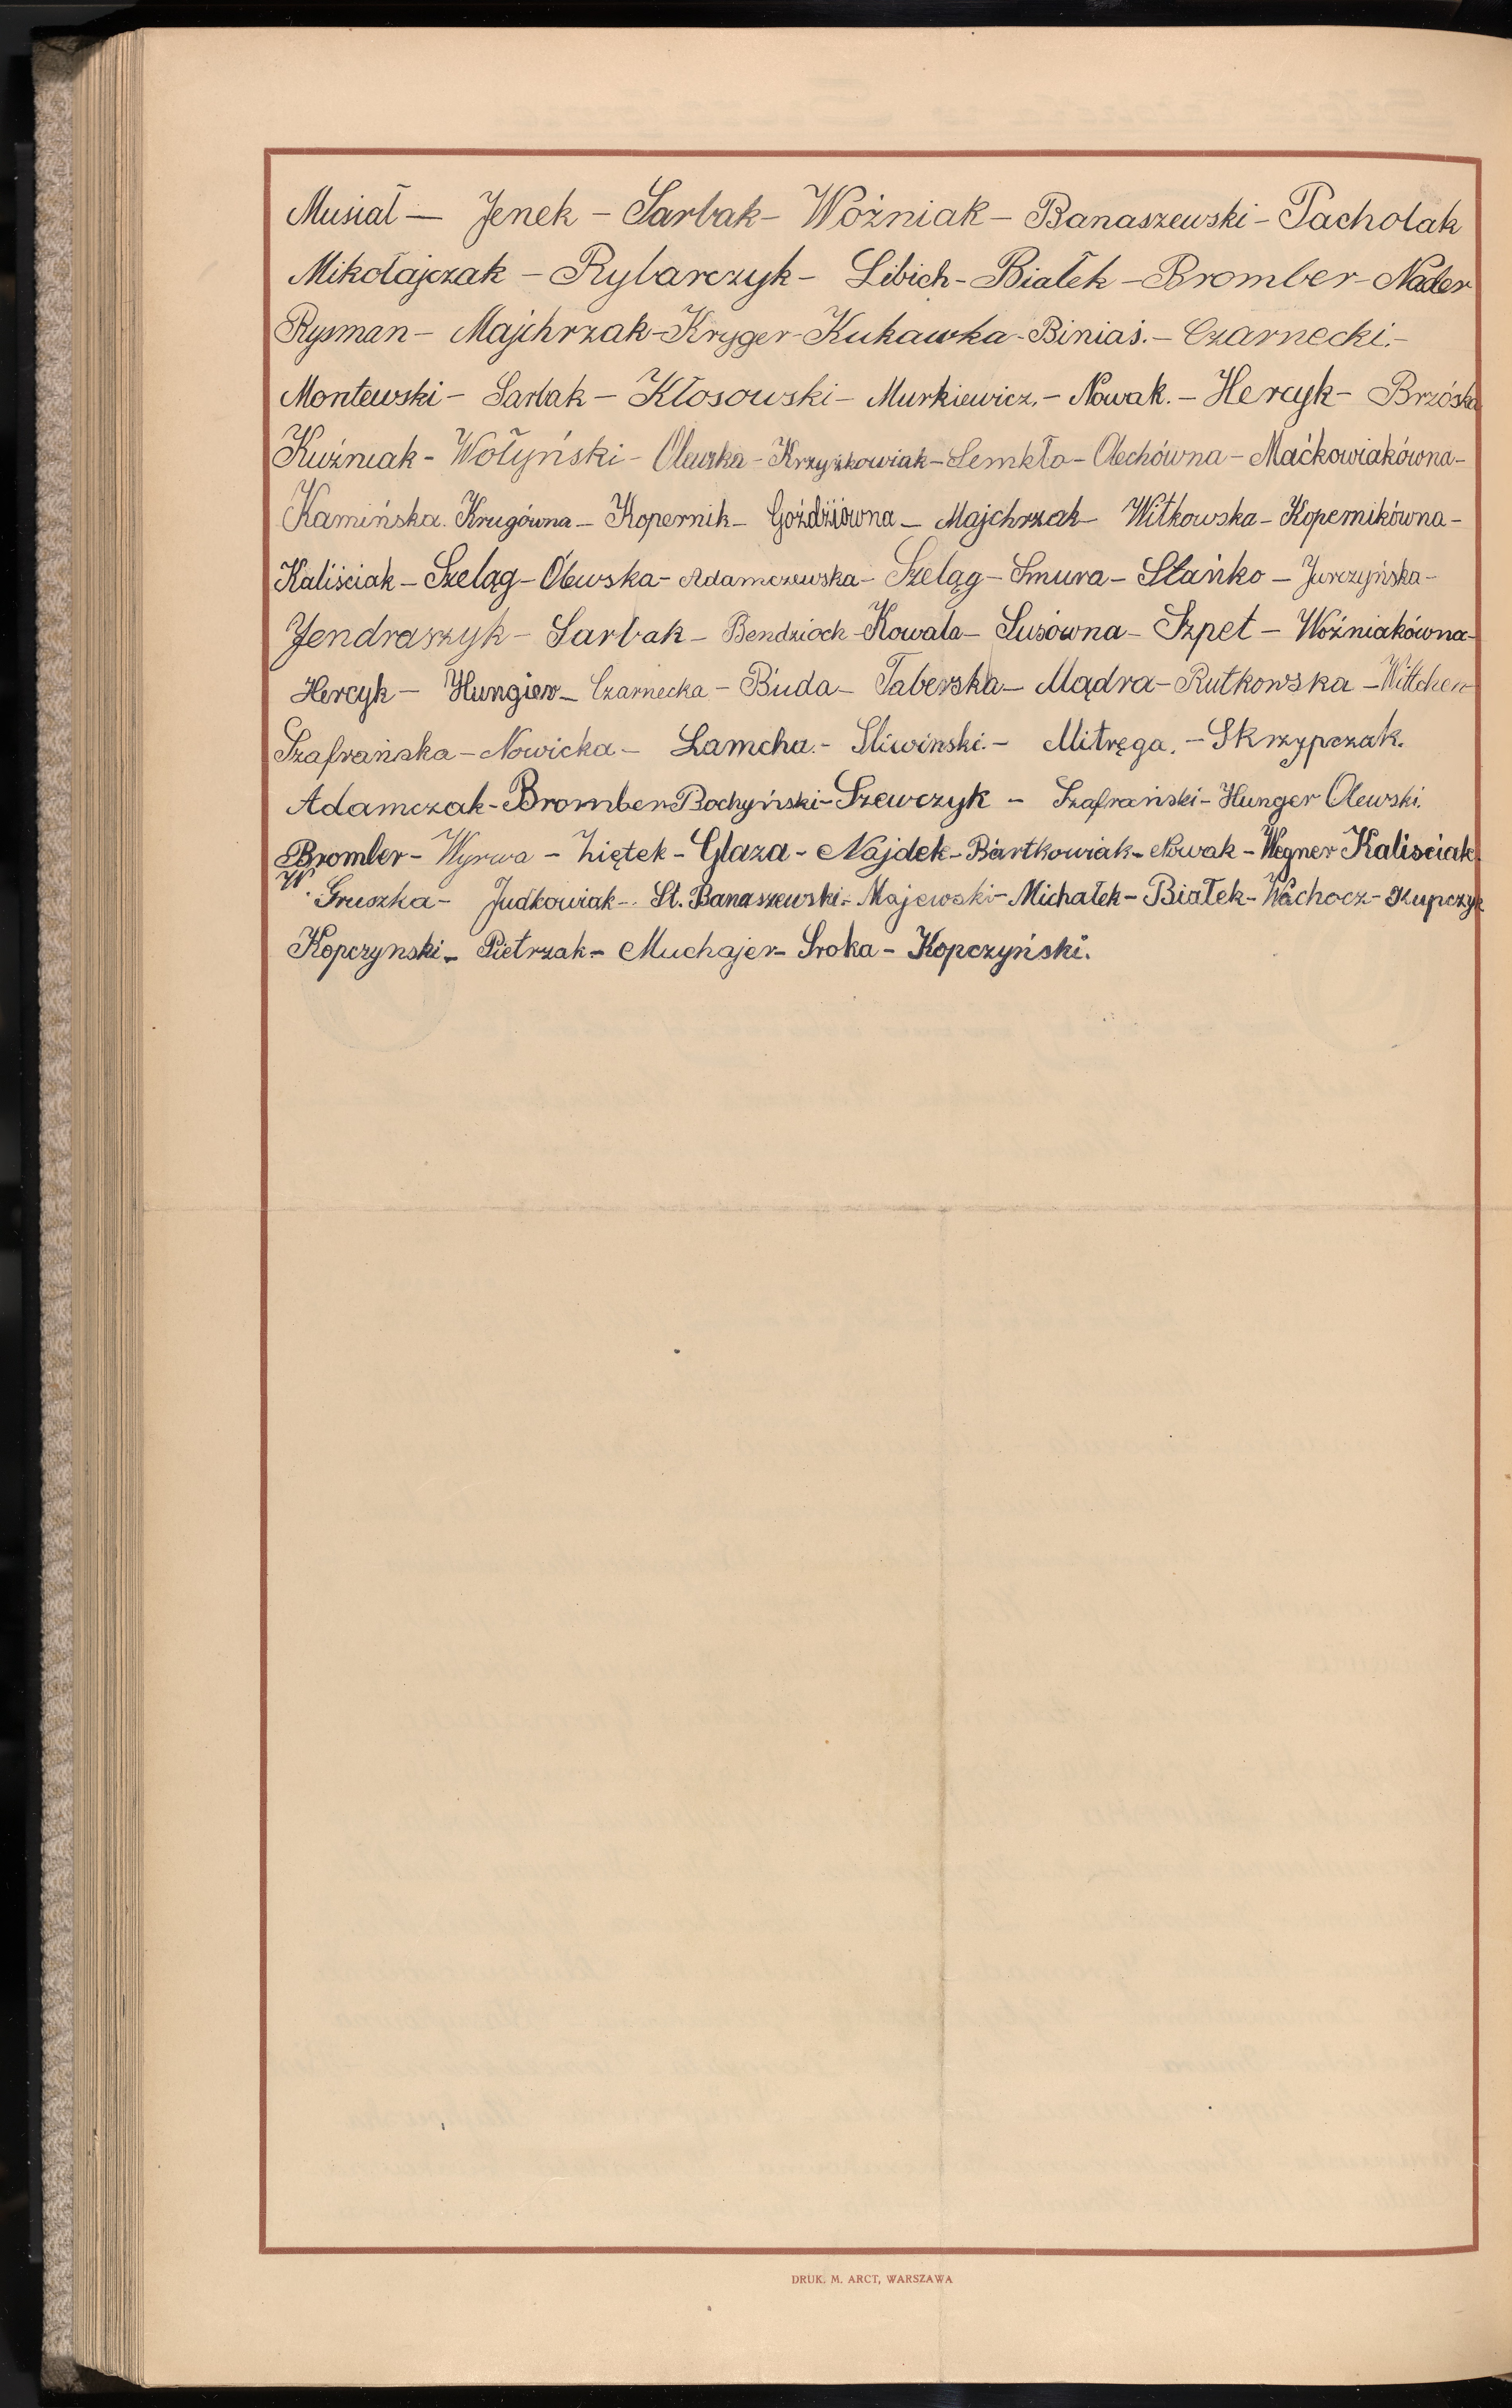 Musiał — Jenek - Sarbak - Woźniak - Banaszewski - Pacholak
Mikołajczak - Rybarczyk - Libich - Białek - Bromber - Nader
Rysman - Majchrzak - Kryger - Kukawka - Biniaś. - Czarnecki. -
Montewski - Sarbak - Kłosowski - Murkiewicz. - Nowak. - Hercyk - Brzóska
Kuźniak - Wołyński - Olewska - Krzyżkowiak - Lemkło - Olechówna - Maćkowiakówna -
Kamińska. Krugówna - Kopernik - Goździówna - Majchrzak - Witkowska - Kopernikówna -
Kaliściak - Szeląg - Olewska - Adamczewska - Szeląg - Smura - Stańko - Jurczyńska -
Jendraszyk - Sarbak - Bendzioch - Kowala - Susówna - Szpet - Woźniakówna -
Hercyk - Hungier - Czarnecka - Buda - Taberska - Mądra - Rutkowska - Wittchen
Szafrańska - Nowicka - Lamcha. - Sliwinski. - Mitręga. - Skrzypczak.
Adamczak - Bromber - Bochyński - Szewczyk - Szafrański - Hunger Olewski.
Bromber - Wyrwa - Ziętek - Glaza - Najdek - Bartkowiak - Nowak - Wegner Kalisciak
W. Gruszka - Judkowiak - St. Banaszewski - Majewski - Michałek - Białek - Wachocz - Kupczyk
Kopczynski - Pietrzak - Muchajer - Sroka - Kopczyński.
DRUK. M. ARCT, WARSZAWA